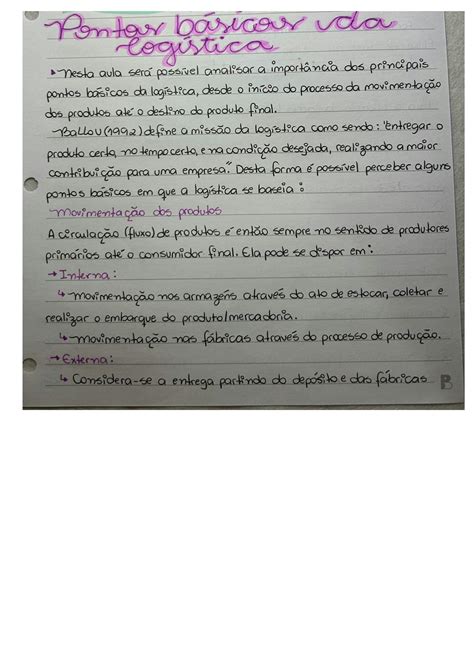 Pontos básicos da
logística
▸ Nesta aula será possível analisar a importância dos principais
pontos básicos da logística, desde o início do processo da movimentação
dos produtos até o destino do produto final.
Ballou (1992) define a missão da logística como sendo: "entregar o
produto certo, no tempo certo, e na condição desejada, realizando a maior
contribuição para uma empresa". Desta forma é possível perceber alguns
pontos básicos em que a logística se baseia:
Movimentação dos produtos
A circulação (fluxo) de produtos é então sempre no sentido de produtores
primários até o consumidor final. Ela pode se dispor em:
→ Interna:
↳ Movimentação nos armazéns através do ato de estocar, coletar e
realizar o embarque do produto/mercadoria.
↳ Movimentação nas fábricas através do processo de produção.
→ Externa:
↳ Considera-se a entrega partindo do depósito e das fábricas
B